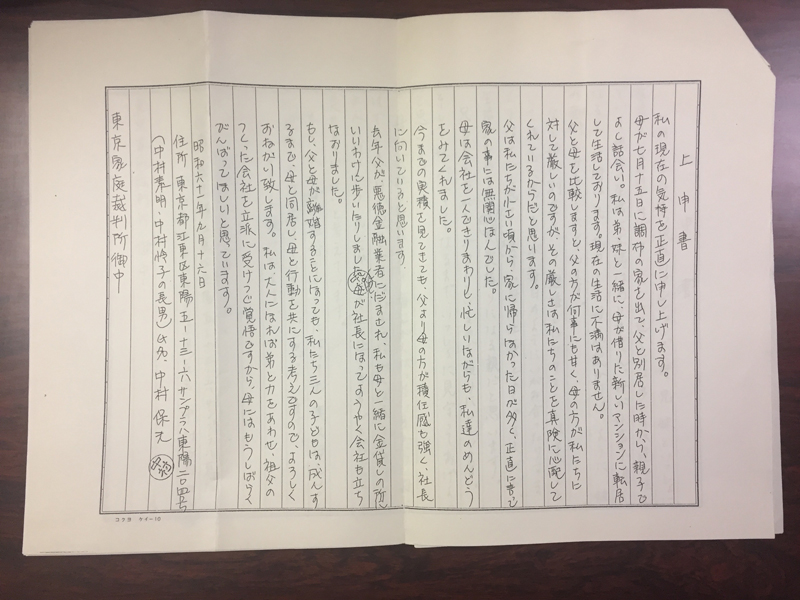 上申書
私の現在の気持を正直に申し上げます。
母が七月十五日に調布の家を出て、父と別居した時から、親子で
よく話合い。私は弟、妹と一緒に、母が借りた新しいマンションに転居
して生活しております。現在の生活に不満はありません。
父と母を比較しますと、父の方が何事にも甘く、母の方が私たちに
対して厳しいのですが、その厳しさは私たちのことを真険に心配して
くれているからだと思います。
父は私たちが小さい頃から、家に帰らなかった日が多く、正直に言って
家の事には無関心なんでした。
母は会社を一人できりまわりし、忙しいながらも、私達のめんどう
をみてくれました。
今までの実積を見てきても、父より母の方が積任感も強く、社長
に向いていると思います。
去年父が、悪徳金融業者にだまされ、私も母と一緒に金貸しの所に
いいわけに歩いたりしました。母が社長になってようやく会社も立ち
なおりました。
もし、父と母が離婚することになっても、私たち三人の子どもは、成人す
るまで、母と同居し母と行動を共にする考えですので、よろしく
おねがい致します。私は大人になれば弟と力をあわせ、祖父の
つくった会社を立派に受けつぐ覚悟ですから、母にはもうしばらく
がんばってほしいと思っています。
昭和六十一年九月十六日
住所 東京都江東区東陽五ー十三ー六サンプラハ東陽二〇四号
(中村孝明・中村怜子の長男) 氏名 中村保元
東京家庭裁判所御中
コクヨ ケイー10